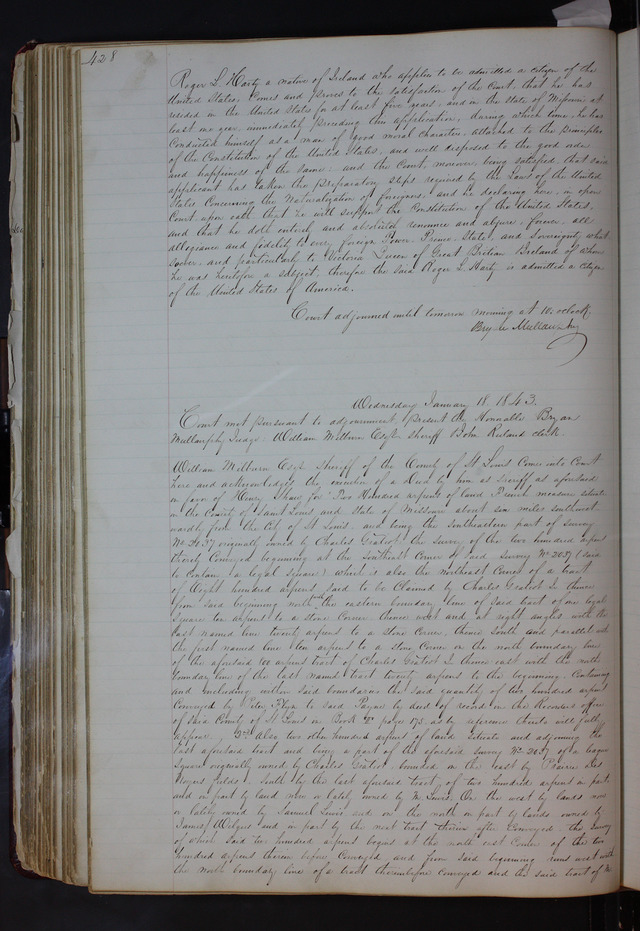 428
Roger S. Harty a native of Ireland who applies to be admitted a citizen of the
United States, Comes and proves to the satisfaction of the Court that he has
resided in the United States for at least five years, and in the State of Missouri at
least one year immediately preceding this application, during which time he has
Conducted himself as a man of good moral character, attached to the principles
of the Constitution of the United States, and well disposed to the good order
and happiness of the same: and the Court moreover being satisfied that said
applicant has taken the preparatory steps required by the Laws of the United
States Concerning the Naturalization of foreigners, and he declaring here, in open
Court upon oath that he will support the Constitution of the United States,
and that he doth entirely and absolutely renounce and abjure, forever, all
allegiance and fidelity to every foreign Power Prince, State, and Sovereignty what
soever and particularly to Victoria Queen of Great Britian Ireland of whom
he was heretofore a subject; therefore the said Roger S. Harty is admitted a citizen
of the United States of America.
Court adjourned until tomorrow morning at 10. oclock
Bryan Mullanphy
Wednesday January 18. 1843.
Court met pursuant to adjournment, Present the Honorable Bryan
Mullanphy Judge. William Milburn Esqr. Sheriff John Ruland clerk.
William Milburn Esqr. Sheriff of the County of St Louis Comes into Court
here and acknowledges the execution of a deed by him as Sheriff as aforesaid
in favor of Henry Shaw for Two Hundred arpens of land French measure situate
in the County of Saint Louis and State of Missouri about six miles southwest
wardly from the City of St Louis, and being the southeastern part of Survey
No 2037 originally owned by Charles Gratiot the Survey of the two hundred arpens
hereby Conveyed beginning at the Southeast Corner of said Survey No 2037 (said
to Contain a legal square) which is also the northeast Corner of a tract
of Eight hundred arpens said to be Claimed by Charles Gratiot Jr thence
from said beginning north with the eastern boundary line of said tract of one legal
square ten arpens to a stone Corner thence west and at right angles with the
last named line twenty arpens to a stone Corner, thence South and parallel with
the first named line ten arpens to a stone Corner on the north boundary line
of the aforesaid 800 arpens tract of Charles Gratiot Jr thence east with the north
boundary line of the last named tract twenty arpens to the beginning. Containing
and including within said boundaries the said quantity of two hundred arpens
Conveyed by Peter to said Payne by deed of record in the Recorders office
of said County of St Louis in Book page 175. as by reference thereto will fully
appear, 2nd Also two other hundred arpens of land situate and adjoining the
last aforesaid tract and being a part of the aforesaid Survey No 2037 of a league
square originally owned by Charles Gratiot, bounded on the east by Prairie des
Noyers fields South by the last aforesaid tract, of two hundred arpens in part
and in part by land now or lately owned by M. Lewis, On the west by lands now
or lately owned by Samuel Lewis and on the north in part by lands owned by
James and in part by the next tract herein after Conveyed the Survey
of which said two hundred arpens begins at the north east Corner of the two
hundred arpens herein before Conveyed and from said beginning runs west with
the north boundary line of a tract hereinbefore conveyed and the said tract of M